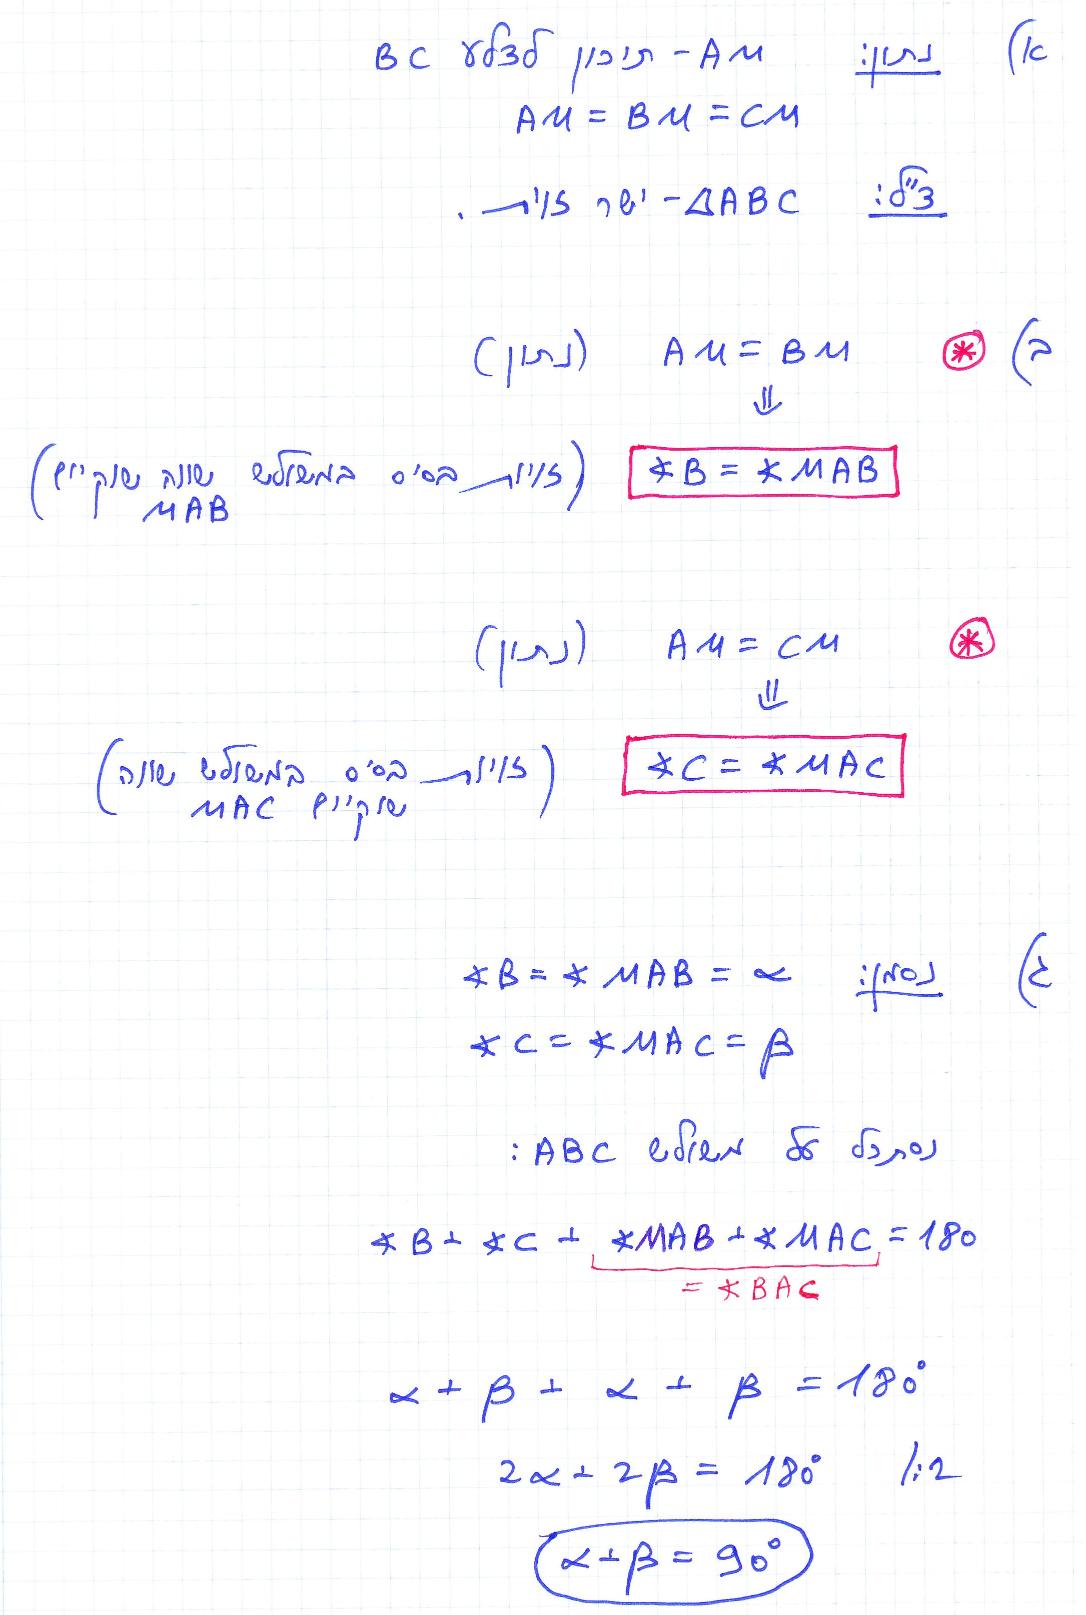 א) נתון: AM - תיכון לצלע BC
AM = BM = CM
צ"ל: ΔABC - ישר זוית.
ב) ⊛ AM = BM (נתון)
⇓
∢B = ∢MAB (זוויות בסיס במשולש שווה שוקיים
MAB)
⊛ AM = CM (נתון)
⇓
∢C = ∢MAC (זוויות בסיס במשולש שווה
שוקיים MAC)
ג) נסמן: ∢B = ∢MAB = α
∢C = ∢MAC = β
נסתכל על משולש ABC:
∢B + ∢C + ∢MAB + ∢MAC = 180
= ∢BAC
α + β + α + β = 180°
2α + 2β = 180° /:2
α + β = 90°